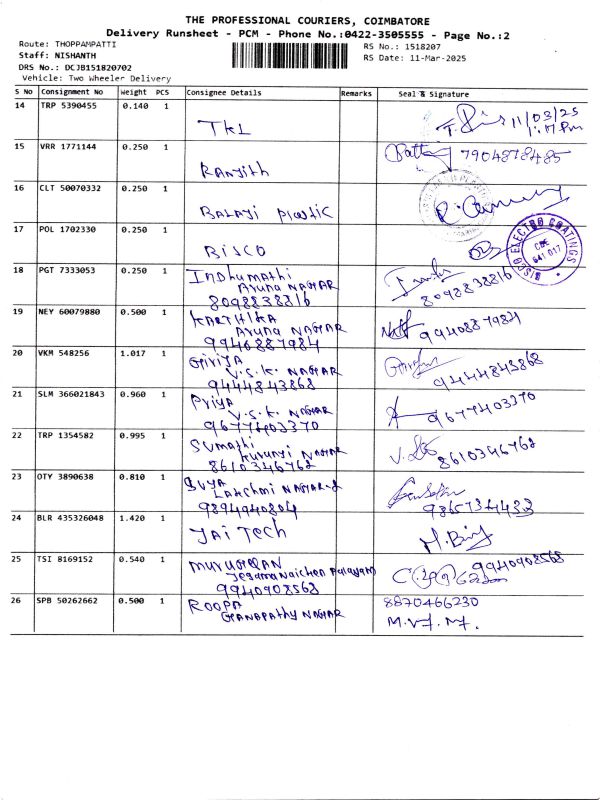 THE PROFESSIONAL COURIERS, COIMBATORE
Delivery Runsheet - PCM - Phone No.:0422-3505555 - Page No.:2
Route: THOPPAMPATTI
RS No.: 1518207
Staff: NISHANTH
RS Date: 11-Mar-2025
DRS No.: DCJB151820702
Vehicle: Two Wheeler Delivery
S No Consignment No Weight PCS Consignee Details Remarks Seal & Signature
14 TRP 5390455 0.140 1
TKL
11/03/25
1:17 Pm
15 VRR 1771144 0.250 1
Ranjith
7904878485
16 CLT 50070332 0.250 1
Balaji plastic
17 POL 1702330 0.250 1
BISCO
BISCO ELECTRO COATINGS
CBE
641 017
18 PGT 7333053 0.250 1
Indhumathi
Aruna NAGAR
8098838816
8098838816
19 NEY 60079880 0.500 1
KARTHIKA
Aruna NAGAR
9940887984
9940887984
20 VKM 548256 1.017 1
Girija
V.S.K. NAGAR
9444843868
9444843868
21 SLM 366021843 0.960 1
Priya
V.S.K. NAGAR
9677403370
9677403370
22 TRP 1354582 0.995 1
Sumathi
Kurunji NAGAR
8610346762
8610346762
23 OTY 3890638 0.810 1
Lakshmi NAGAR
9894940804
9865734433
24 BLR 435326048 1.420 1
JAI Tech
25 TSI 8169152 0.540 1
Murugesan
Palayam
9940908568
9940908568
26 SPB 50262662 0.500 1
ROOPA
GANAPATHY NAGAR
8870466230